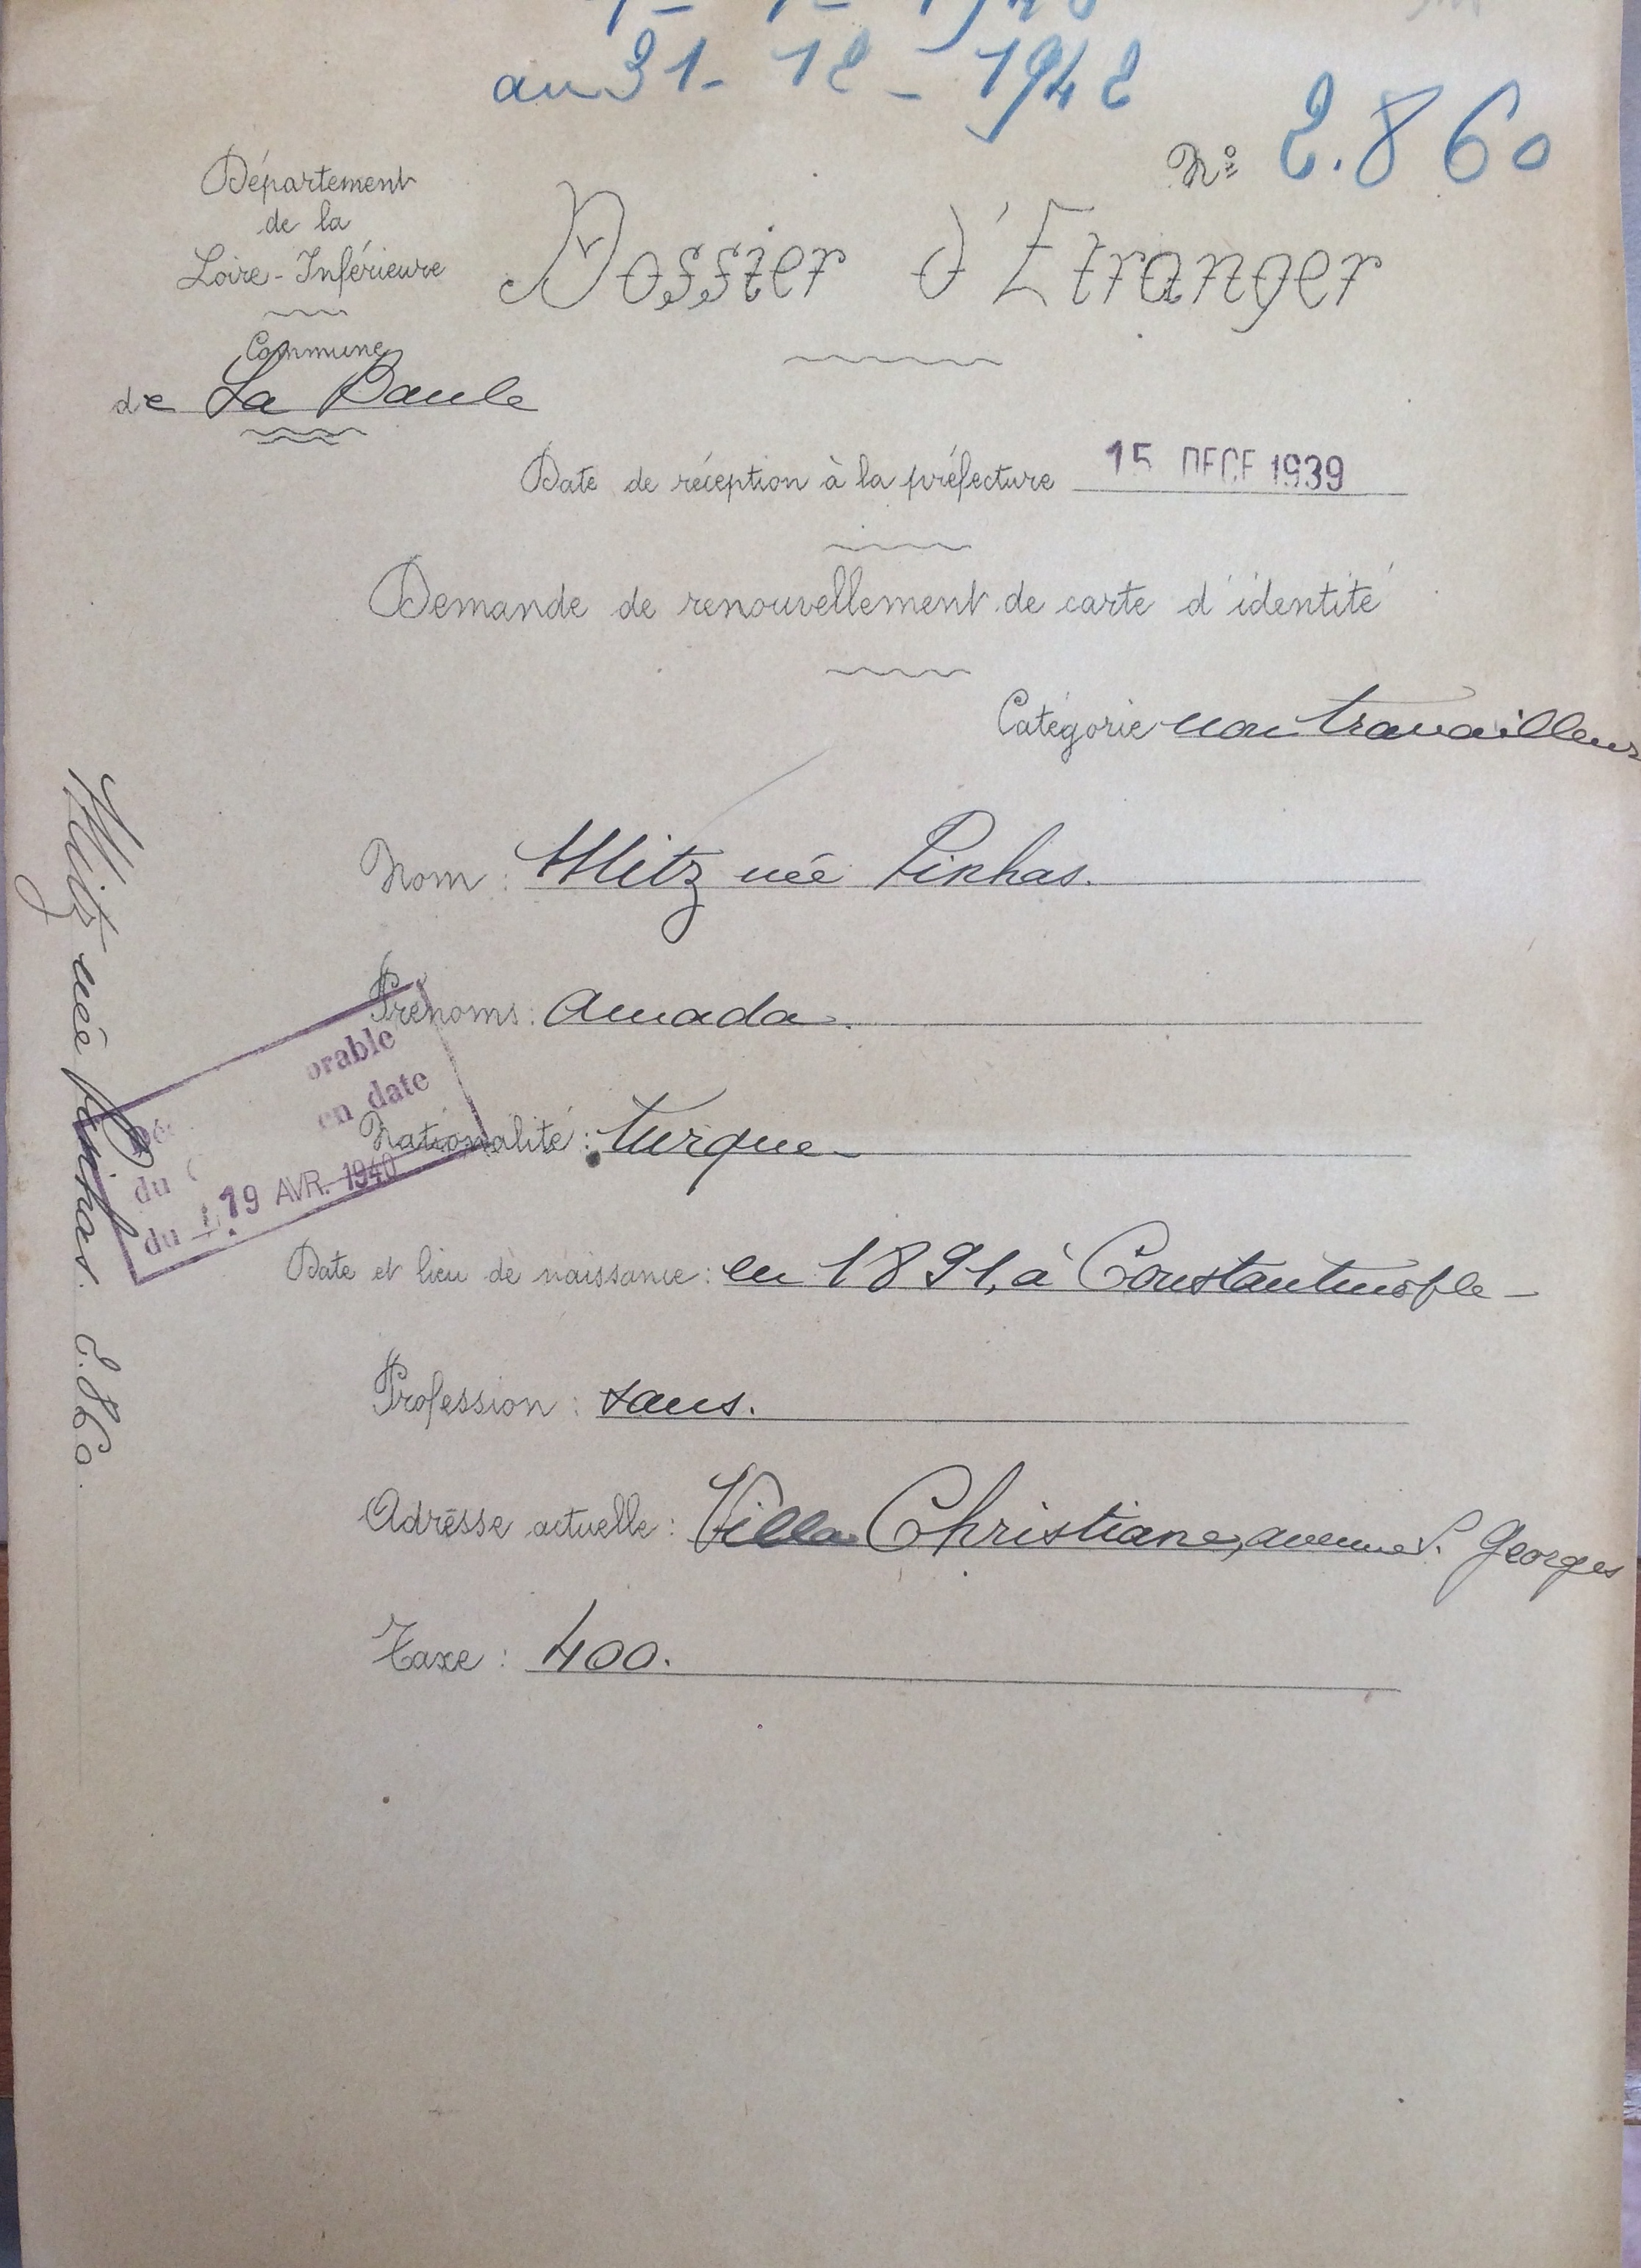 au 31 - 12 - 1942
N° 2.860
Département
de la
Loire-Inférieure
Commune
de La Baule
Dossier d'Etranger
Date de réception à la préfecture 15 DECE 1939
Demande de renouvellement de carte d'identité
Catégorie non travailleur
Nom : Mitz née Pinhas.
Prénoms : Amada.
Nationalité : turque -
Date et lieu de naissance : en 1891, à Constantinople -
Profession : sans.
Adresse actuelle : Villa Christiane, avenue S. Georges
Taxe : 400.
orable
en date
du
du 19 AVR. 1940
Mitz née Pinhas. 2.860.